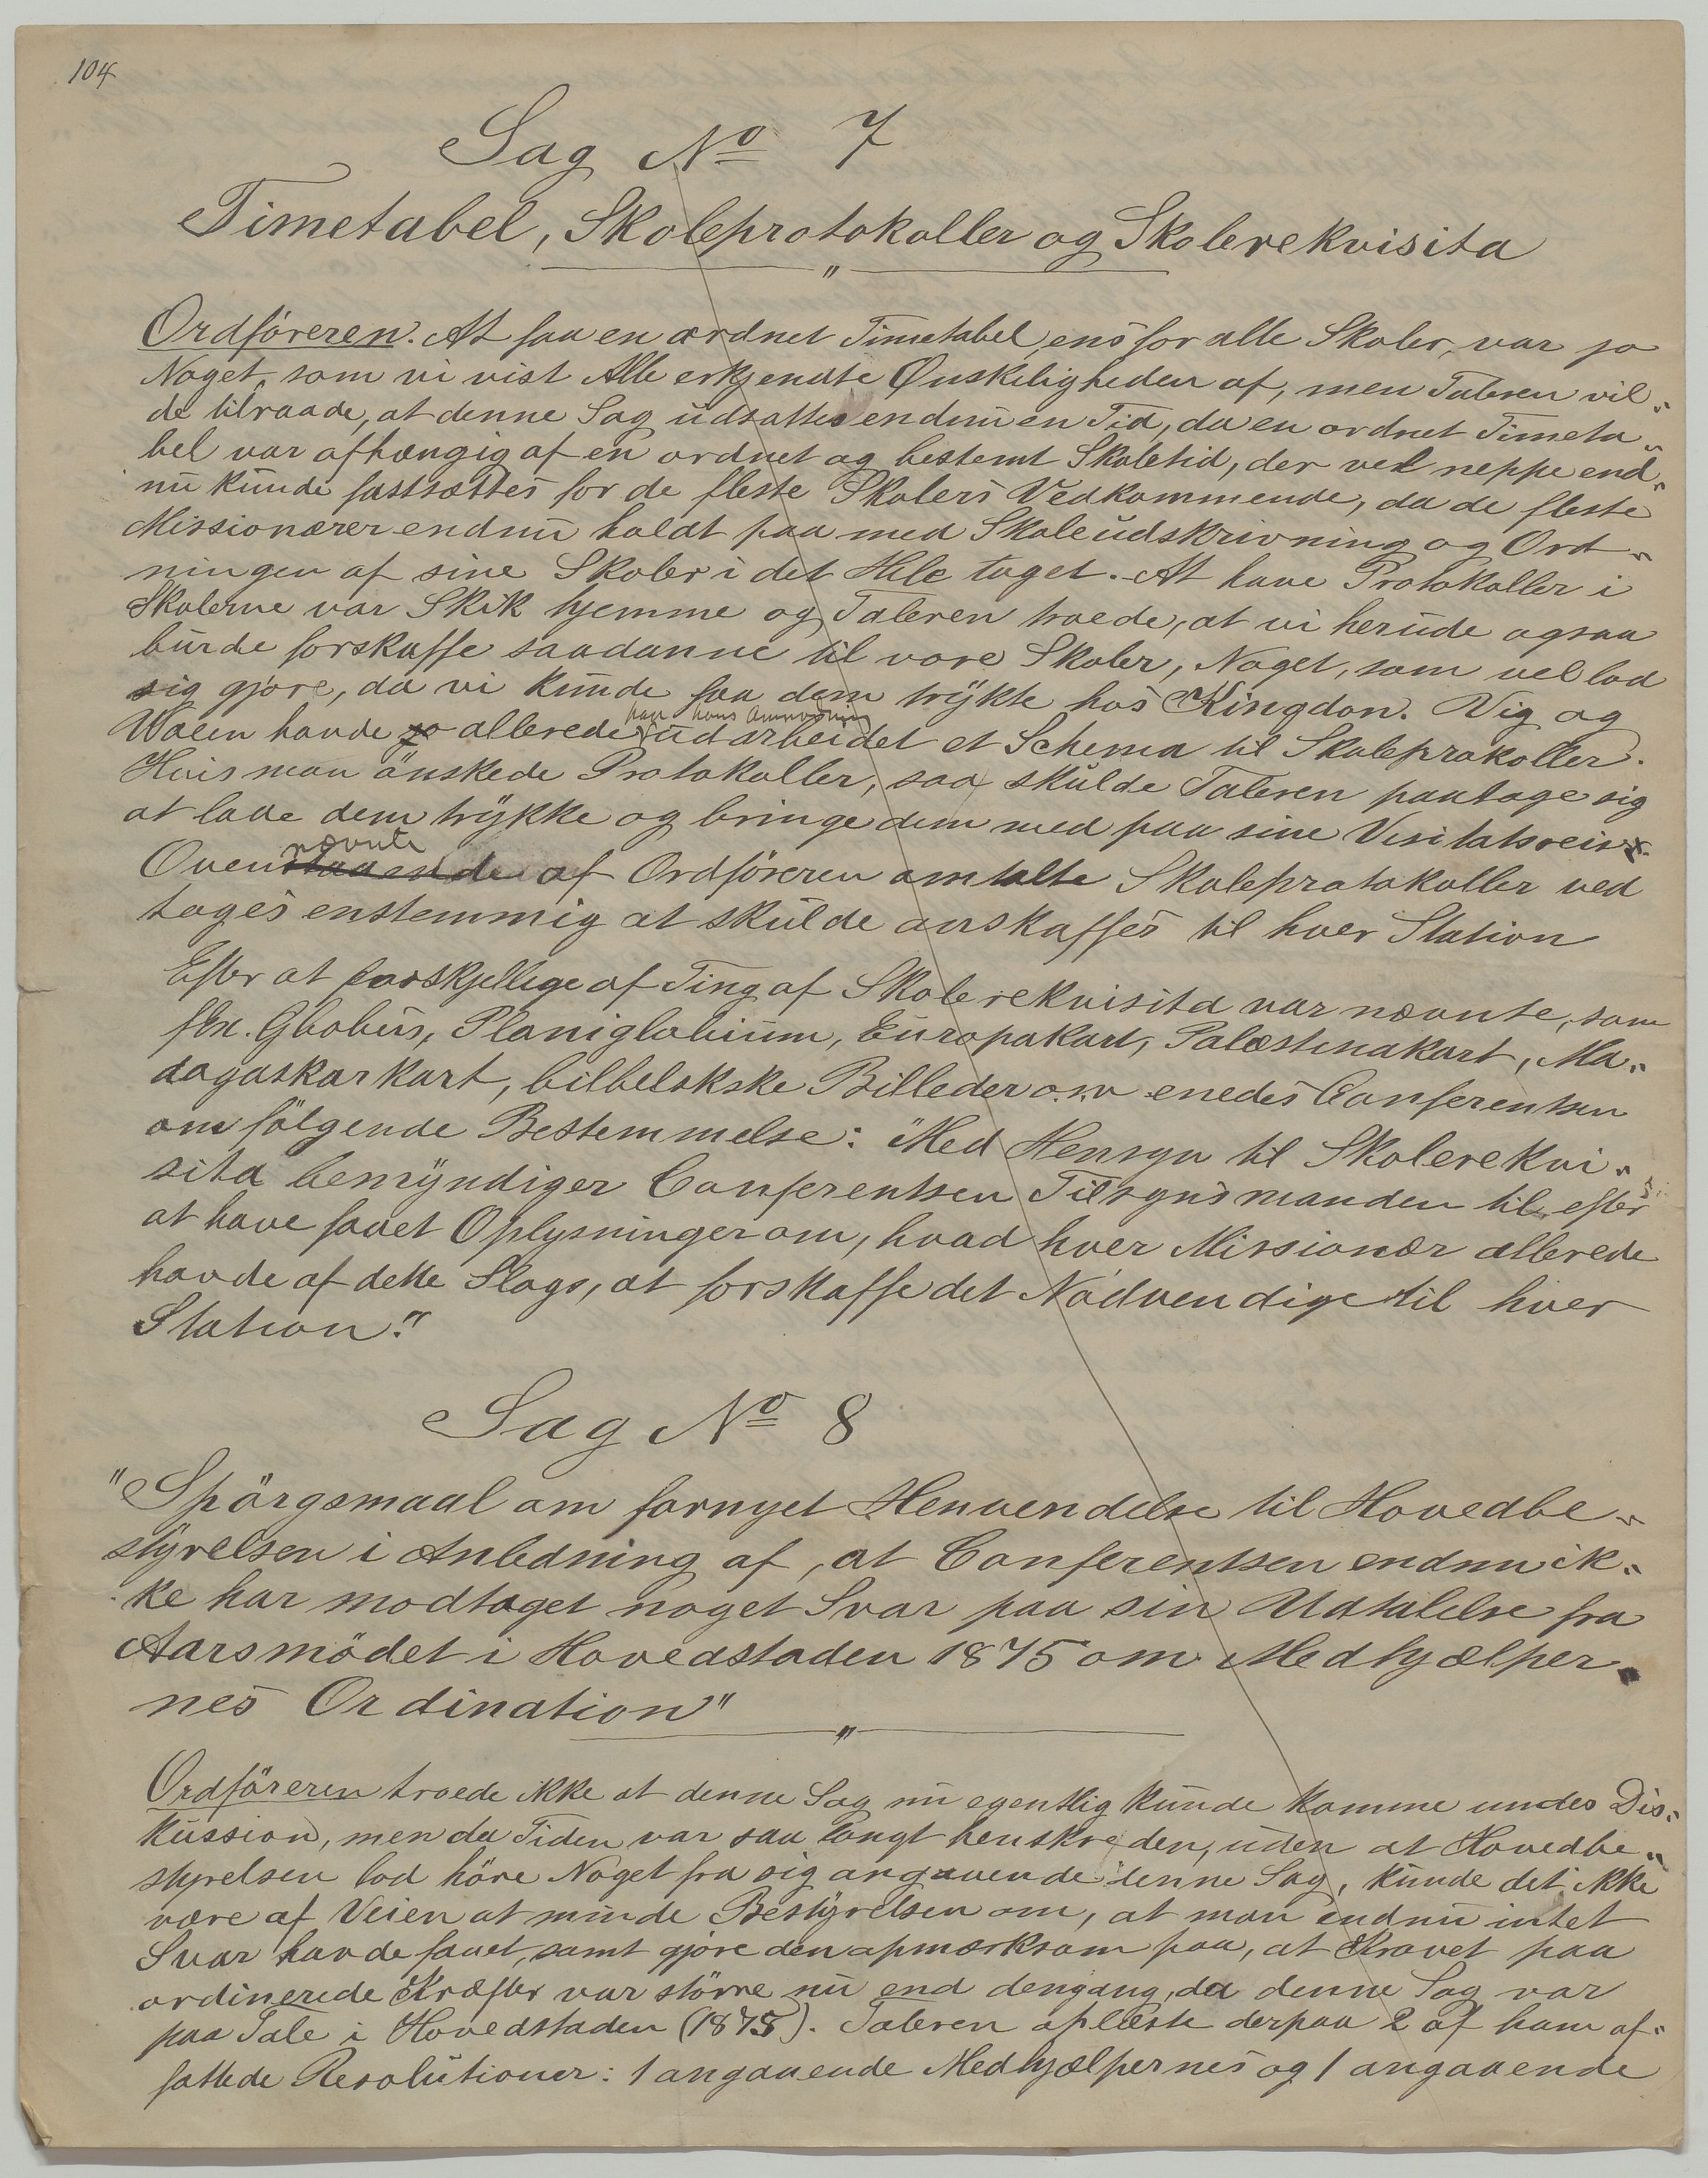 104
Sag No 7
Timetabel, Skoleprotokoller og Skolerekvisita
Ordföreren. At faa en ordnet Timetabel, ens for alle Skoler, var jo
Noget, som vi vist Alle erkjendte Ønskeligheden af, men Taleren vil„
de tilraade, at denne Sag udsattes endnu en Tid, da en ordnet Timeta„
bel var afhængig af en ordnet og bestemt Skoletid, der vel neppe end„
nu kunde fastsættes for de fleste Skolers Vedkommende, da de fleste
Missionærer endnu holdt paa med Skoleudskrivning og Ord„
ningen af sine Skoler i det Hele taget. At have Protokoller i
Skolerne var Skik hjemme og Taleren troede, at vi herude ogsaa
burde forskaffe saadanne til vore Skoler, Noget, som vel lod
sig gjøre, da vi kunde faa dem trykte hos Kingdon. Vig og
paa hans Anmodning
Walen havde jo allerede udarbeidet et Schema til Skoleprokoller.
Hvis man önskede Protokoller, saa skulde Taleren paatage sig
at lade dem trykke og bringe dem med paa sine Visitatsreiser.
nævnte
Ovenstaaende af Ordföreren omtalte Skoleprotokoller ved
toges enstemmig at skulde anskaffes til hver Station
Efter at forskjellige af Ting af Skolerekvisita var nævnte, som
f.Ex. Globus, Planiglobium, Europakart, Palæstinakart, Ma„
dagaskarkart, bilbelskske Billeder o.s.v enedes Conferentsen
om fölgende Bestemmelse: "Med Hensyn til Skolerekvi„
sita bemyndiger Conferentsen Tilsynsmanden til, efter
at have faaet Oplysninger om, hvad hver Missionær allerede
havde af dette Slags, at forskaffe det Nödvendige til hver
Station."
Sag No 8
"Spörgsmaal om fornyet Henvendelse til Hovedbe„
styrelsen i Anledning af, at Conferentsen endnu ik„
ke har modtaget noget Svar paa sin Udtalelse fra
Aarsmödet i Hovedstaden 1875 om Medhjælper„
nes Ordination"
Ordföreren troede ikke at denne Sag nu egentlig kunde komme under Dis„
kussion, men da Tiden var saa langt henskreden, uden at Hovedbe„
styrelsen lod höre Noget fra sig angaaende denne Sag, kunde det ikke
være af Veien at minde Bestyrelsen om, at man endnu intet
Svar havde faaet, samt gjøre den opmærksom paa, at Kravet paa
ordinerede Kræfter var större nu end dengang, da denne Sag var
paa Tale i Hovedstaden (1875). Taleren oplæste derpaa 2 af ham af„
fattede Resolutioner: 1 angaaende Medhjælpernes og 1 angaaende